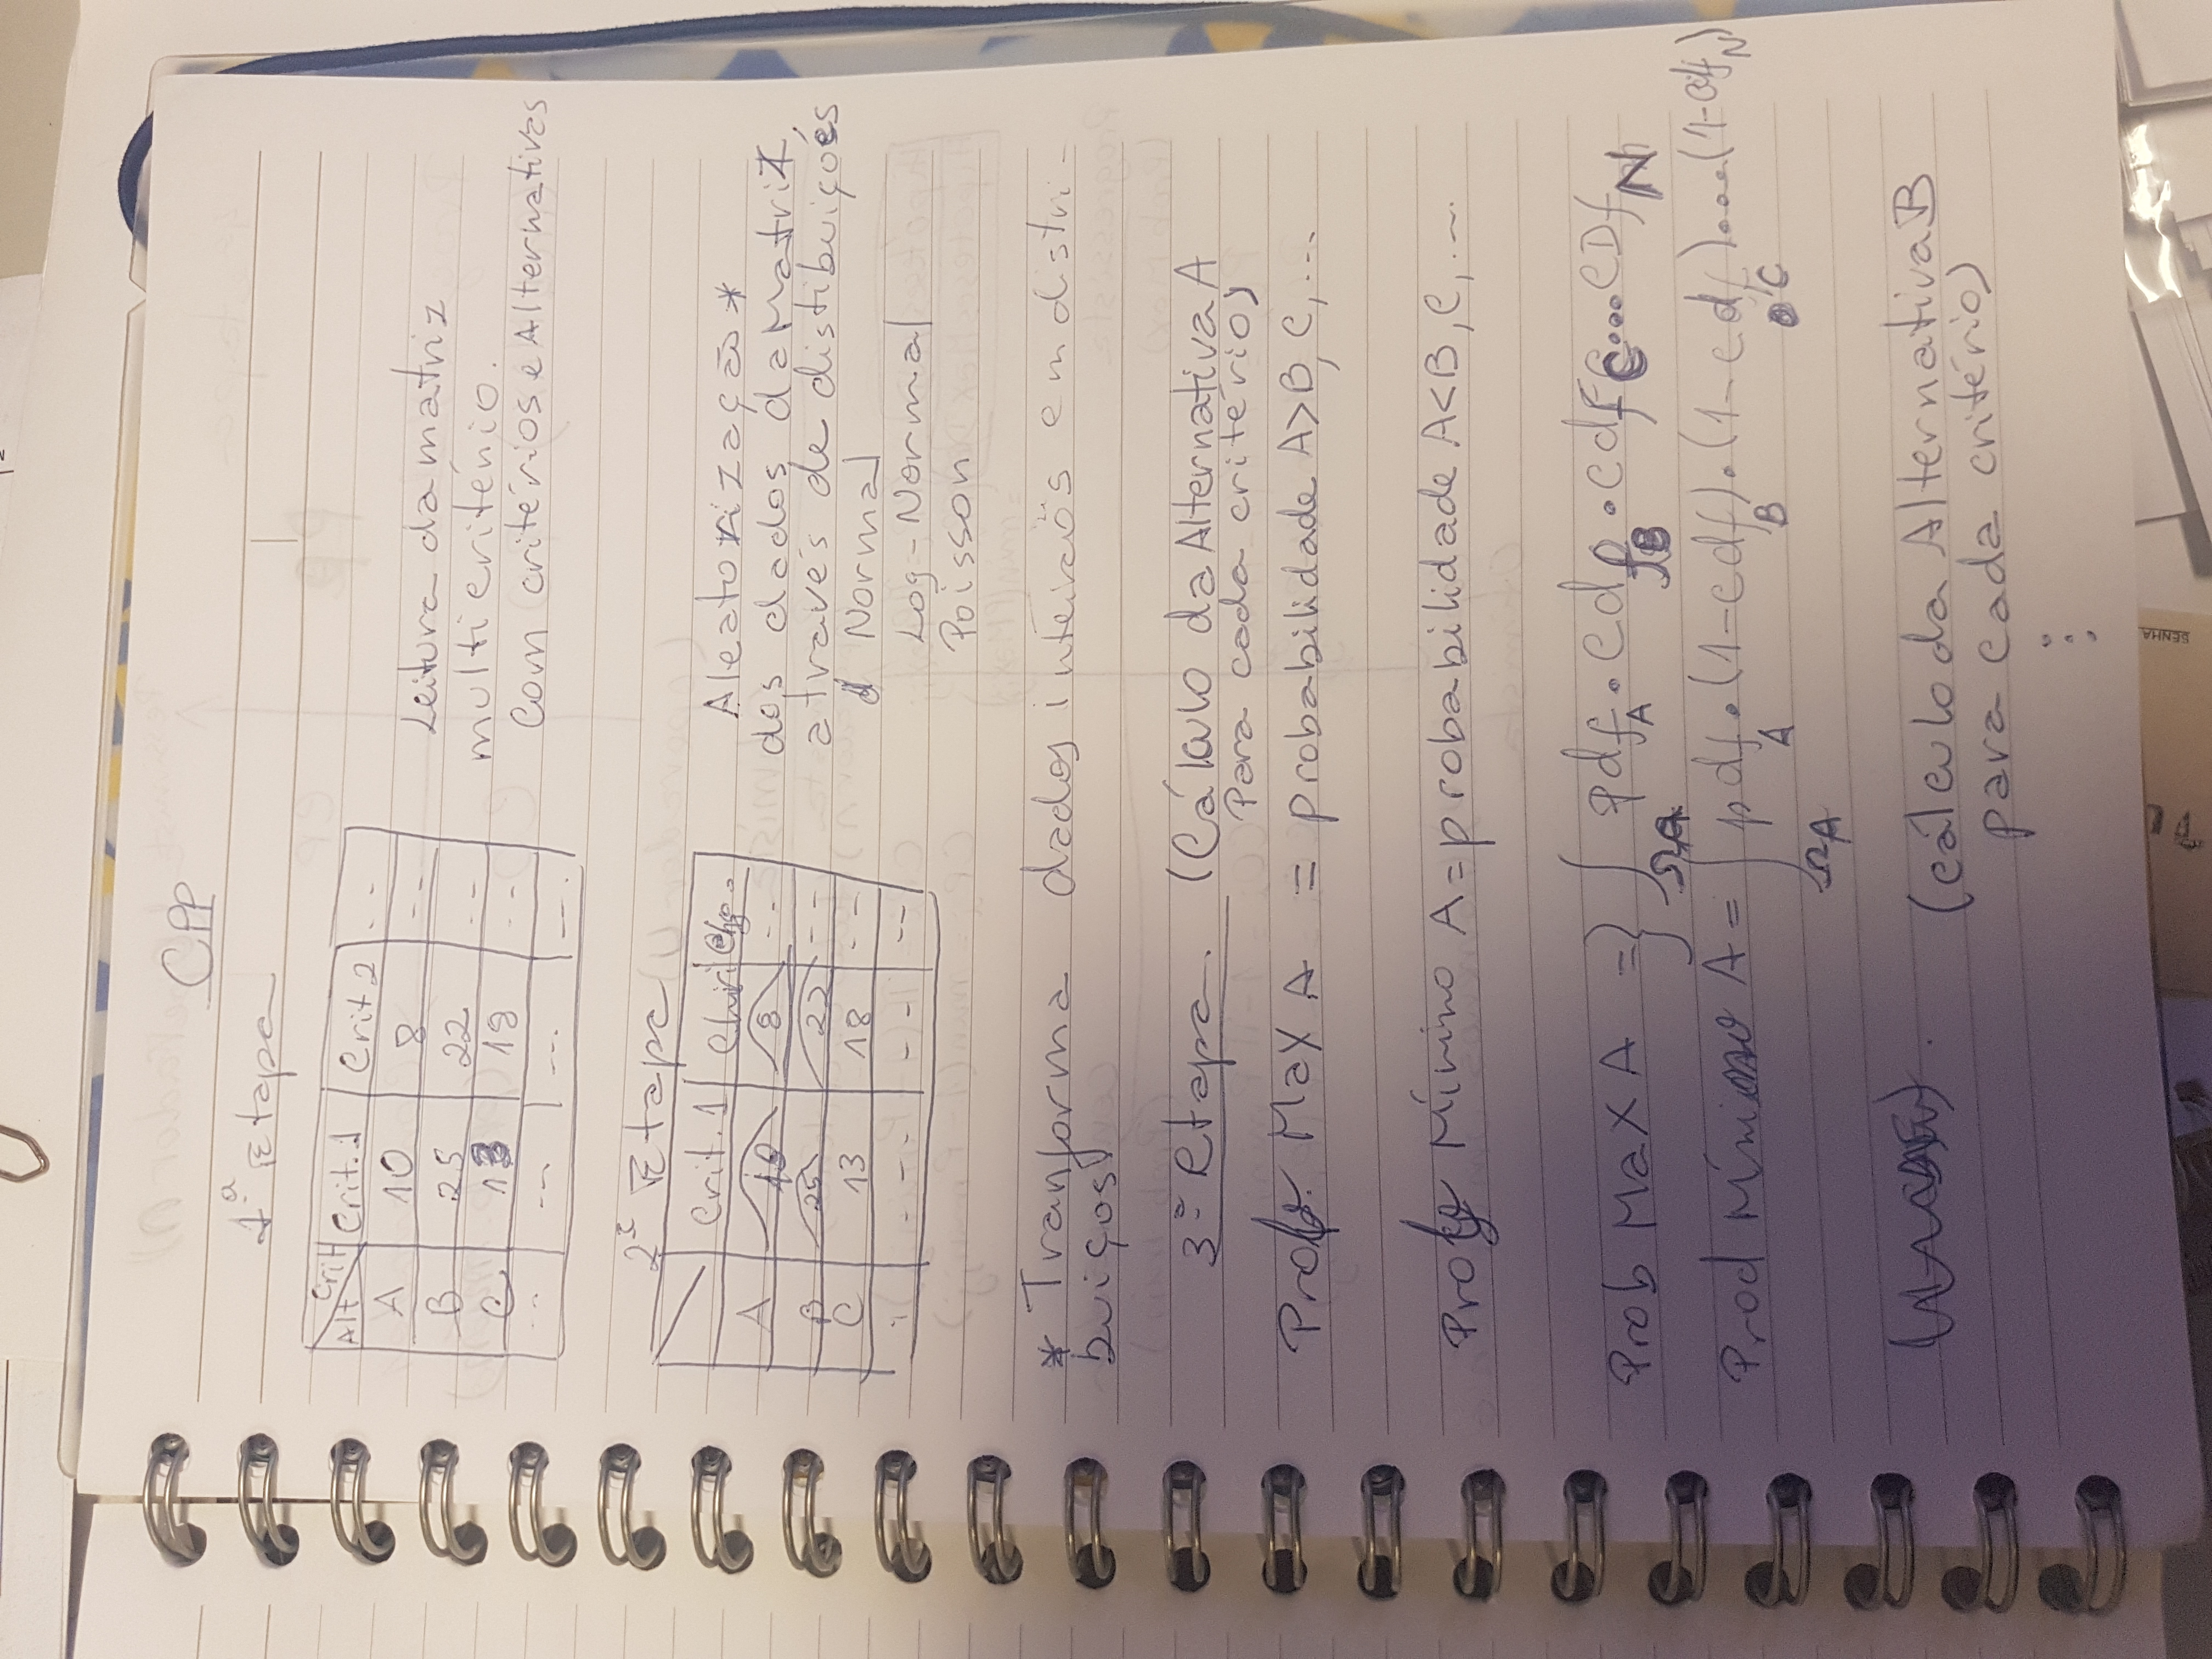 CPP
1ª Etapa
Alt Crit Crit.1 Crit.2 --
A 10 8 --
B 25 22 --
C 13 18 --
-- --- --- ---
Leitura da matriz
multicritério.
Com critérios e Alternativas
2ª Etapa
Crit.1
A 10 8 --
B 25 22 ---
C 13 18 --
--- --- --
Aleatorização *
dos dados da Matriz,
através de distibuições
Normal
Log-Normal
Poisson
* Tranforma dados inteiros em distri-
buiços
3ª Etapa. (Cálculo da Alternativa A
Para cada critério)
Prob. Max A = probabilidade A>B, C, ...
Prob Mínino A = probabilidade A<B, C, ...
Prob Max A = } ∫ΩA pdf A . cdf B . cdf C .... CDf N
Prod Mínimo A = ∫ΩA pdf A . (1-cdf B) . (1-cdf C) .... (1-cdf N)
(cálculo da Alternativa B
para cada critério)
⋮
SENHA